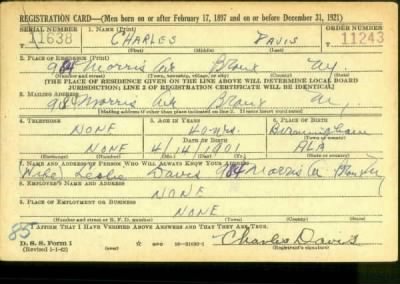 REGISTRATION CARD—(Men born on or after February 17, 1897 and on or before December 31, 1921)
SERIAL NUMBER 1. NAME (Print) ORDER NUMBER
11638 CHARLES DAVIS 11243
(First) (Middle) (Last)
2. PLACE OF RESIDENCE (Print)
984 Morris Av Bronx NY.
(Number and street) (Town, township, village, or city) (County) (State)
[THE PLACE OF RESIDENCE GIVEN ON THE LINE ABOVE WILL DETERMINE LOCAL BOARD
JURISDICTION; LINE 2 OF REGISTRATION CERTIFICATE WILL BE IDENTICAL]
3. MAILING ADDRESS
984 Morris Av Bronx NY,
[Mailing address if other than place indicated on line 2. If same insert word same]
4. TELEPHONE 5. AGE IN YEARS 6. PLACE OF BIRTH
NONE 40-yrs. Birmingham
DATE OF BIRTH (Town or county)
NONE 4/14/1901 ALA
(Exchange) (Number) (Mo.) (Day) (Yr.) (State or country)
7. NAME AND ADDRESS OF PERSON WHO WILL ALWAYS KNOW YOUR ADDRESS
Wife Leslie Davis 984 Morris Av Bronx Ny
8. EMPLOYER'S NAME AND ADDRESS
NONE
9. PLACE OF EMPLOYMENT OR BUSINESS
NONE
(Number and street or R. F. D. number) (Town) (County) (State)
85 I AFFIRM THAT I HAVE VERIFIED ABOVE ANSWERS AND THAT THEY ARE TRUE.
D. S. S. Form 1 Charles Davis
(Revised 1-1-42) 16—21630-1 (Registrant's signature)